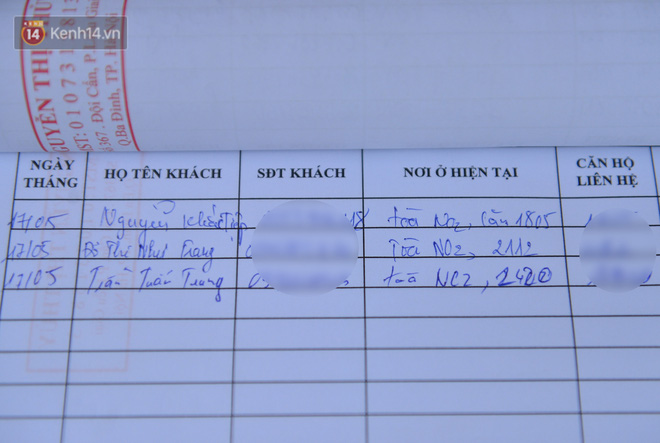 14 Kenh14.vn
NGUYỄN THỊ
MST: 0 1 0 7 3 1 8 1
367. Đội Cấn, P.
Q.Ba Đình, TP. Hà Nội
NGÀY THÁNG HỌ TÊN KHÁCH SĐT KHÁCH NƠI Ở HIỆN TẠI CĂN HỘ LIÊN HỆ
17/05 Nguyễn Khắc 18 toà No2, Căn 1805
17/05 Đỗ Thị Như Trang 0 Toà NO2, 2112
17/05 Trần Tuấn Trang 0 toà NO2, 2420